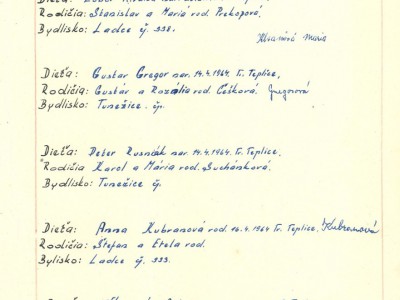 Rodičia: Stanislav a Mária rod. Prekopová.
Bydlisko: Ladce čj. 338.
Dieťa: Gustav Gregor nar. 14.4.1964 Tr. Teplice,
Rodičia: Gustáv a Rozália rod. Češková Gregorová
Bydlisko: Tunežice čj.
Dieťa: Peter Rusnák nar. 14.4.1964. Tr. Teplice.
Rodičia Karol a Mária rod. Suchánková.
Bydlisko: Tunežice čj.
Dieťa: Anna Kubranová rod. 16.4.1964 Tr. Teplice. Kubranová
Rodičia: Štefan a Etela rod.
Bylisko: Ladce čj. 333.